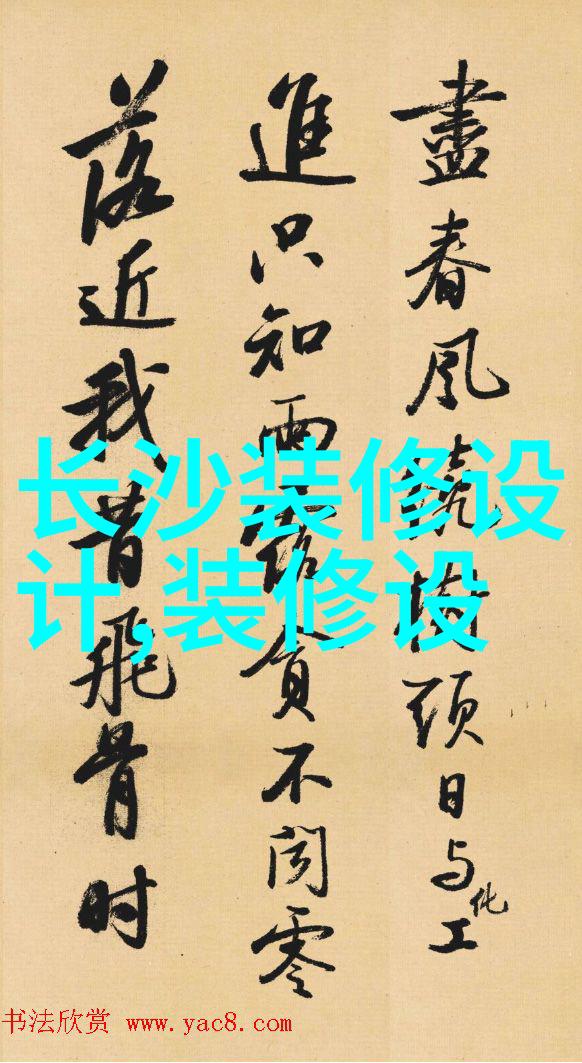 盡春風繞樹頭日与化工
進只知雨露貪不聞零
落近我昔飛骨时
长沙装修设
计,装修设
书法欣赏 www.yac8.com